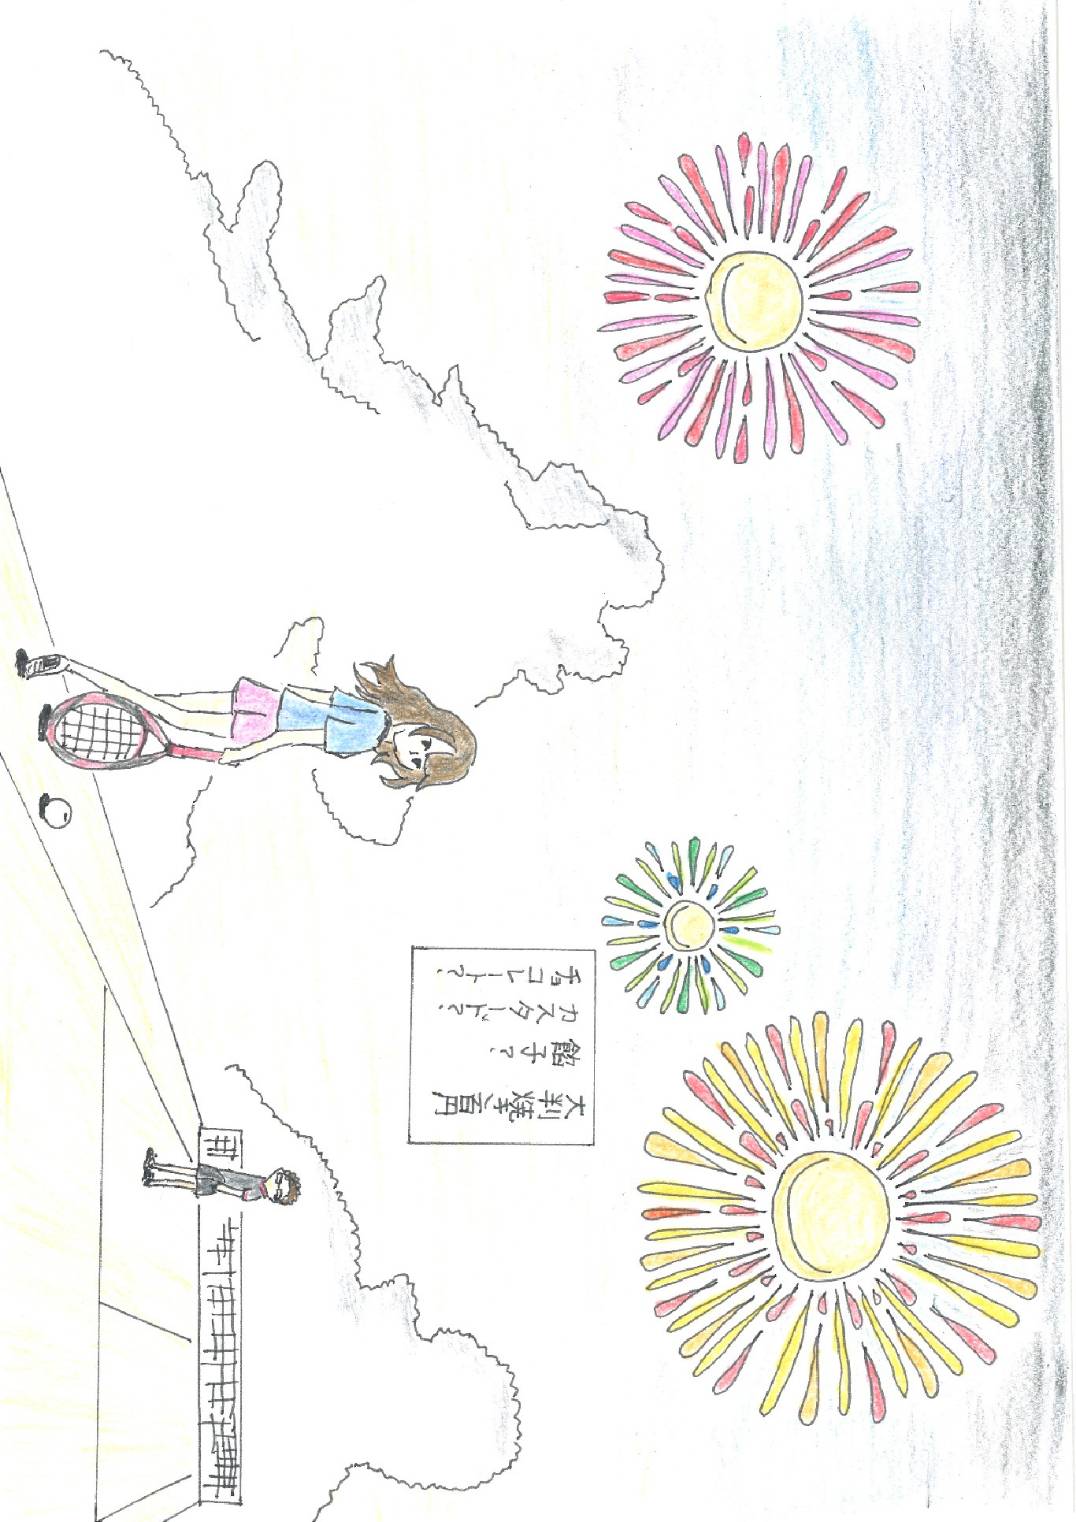 大判焼き百円
餡子?
カスタード?
チョコレート?